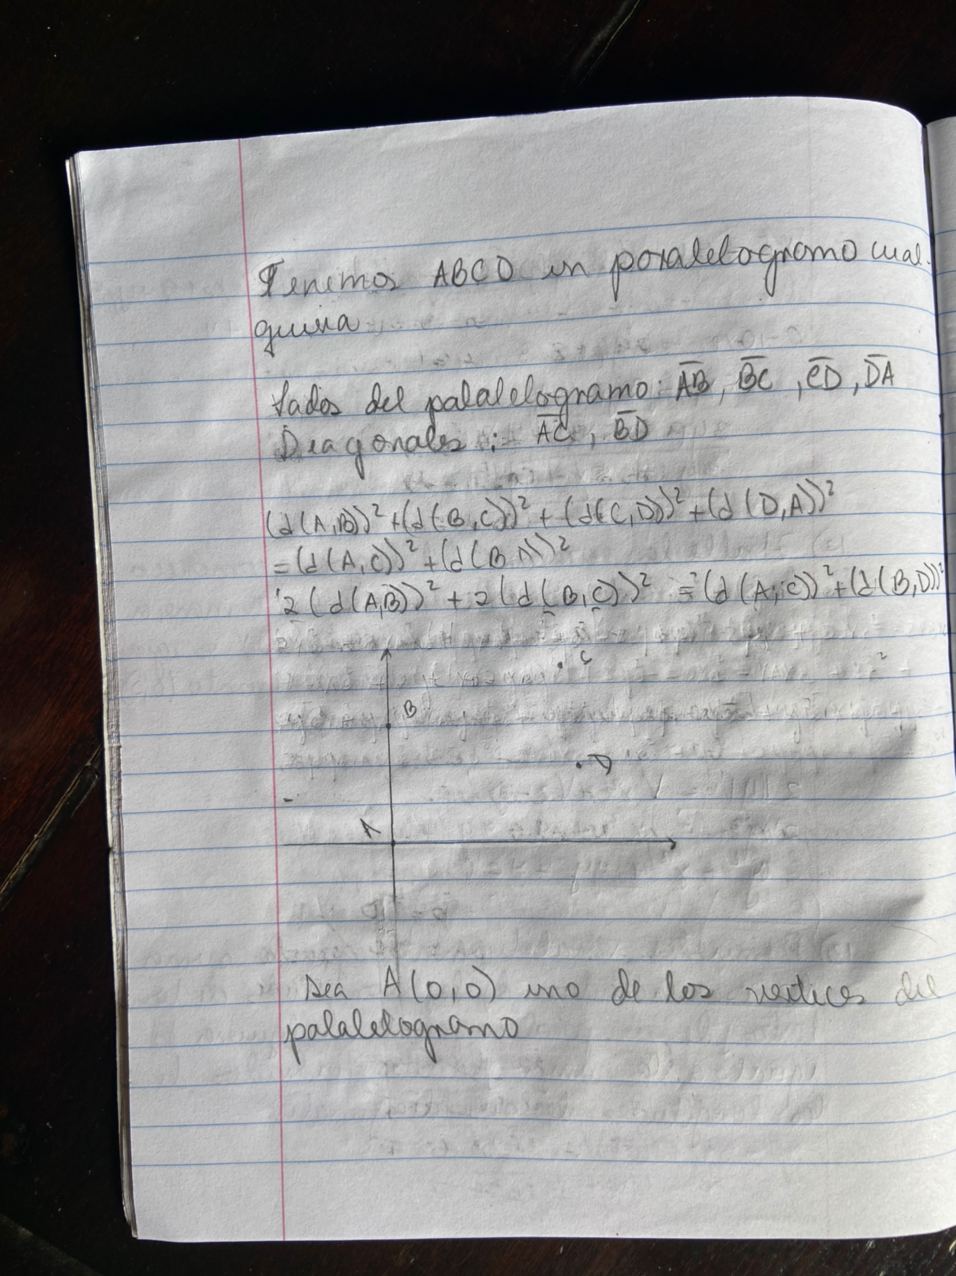 Tenemos ABCD un paralelogramo cual-
quiera
Lados del palalelogramo: A̅B̅, B̅C̅, C̅D̅, D̅A̅
Diagonales: A̅C̅, B̅D̅
(d(A,B))² + (d(B,C))² + (d(C,D))² + (d(D,A))²
= (d(A,C))² + (d(B,D))²
2(d(A,B))² + 2(d(B,C))² = (d(A,C))² + (d(B,D))²
C
B
D
A
Sea A(0,0) uno de los vertices del
palalelogramo